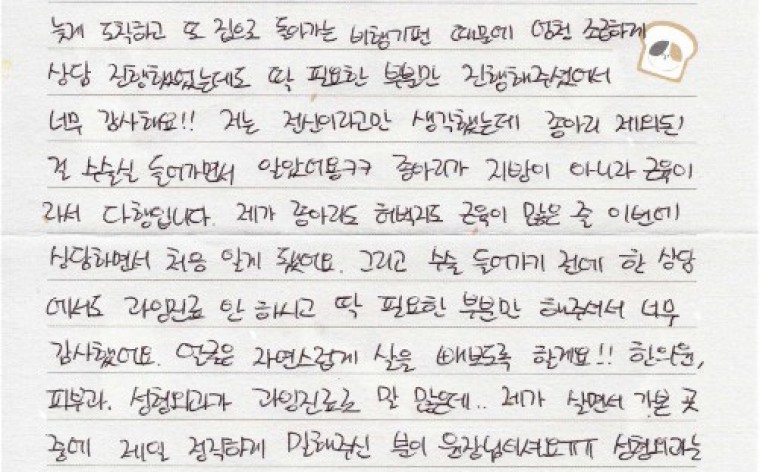 늦게 도착하고 또 집으로 돌아가는 비행기편 때문에 엄청 조급하게
상담 진행했었는데도 딱 필요한 부분만 진행해주셨어서
너무 감사해요!! 저는 전신이라고만 생각했는데 종아리 제외된
걸 수술실 들어가면서 알았어용ㅋㅋ 종아리가 지방이 아니라 근육이
라서 다행입니다. 제가 종아리도 허벅지도 근육이 많은 줄 이번에
상담하면서 처음 알게 됐어요. 그리고 수술 들어가기 전에 한 상담
에서도 과잉진료 안 하시고 딱 필요한 부분만 해주셔서 너무
감사했어요. 얼굴은 자연스럽게 살을 빼보도록 할게요!! 한의원,
피부과, 성형외과가 과잉진료로 말 많은데.. 제가 살면서 가본 곳
중에 제일 정직하게 말해주신 분이 원장님이셔요ㅠㅠ 성형외과는